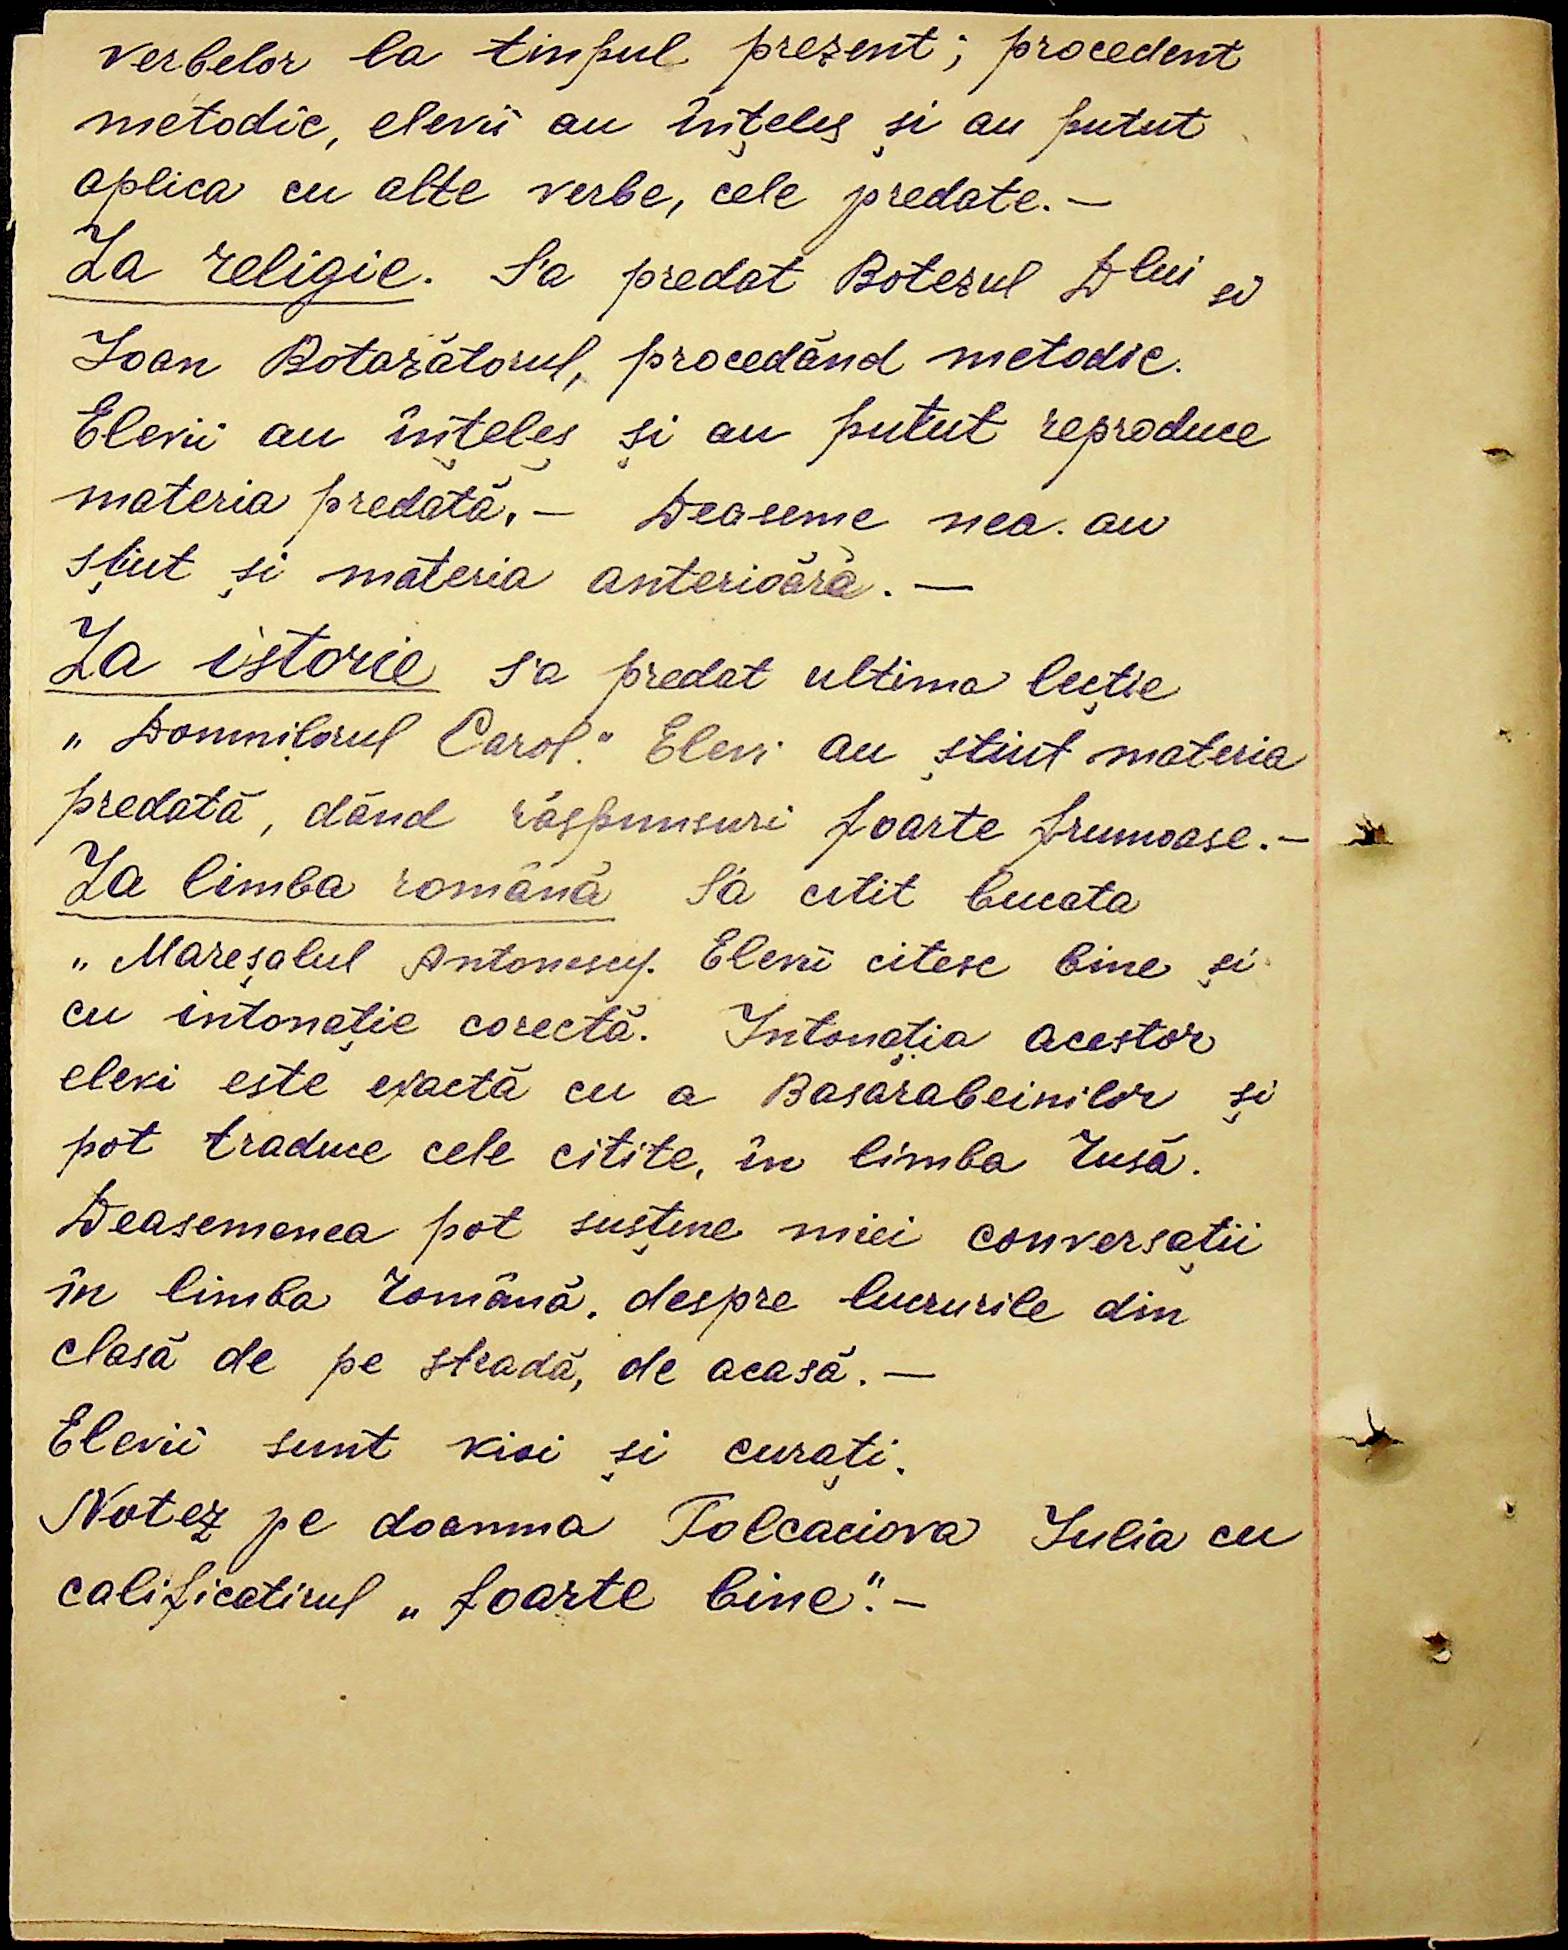 verbelor la tinpul prezent; procedent
metodic, elevii au înțeleș și au putut
aplica cu alte verbe, cele predate.—
La religie. S'a predat Botezul Dlui si
Ioan Botazătorul, procedând metodic.
Elevii au înțeleș și au putut reproduce
materia predată.— Deaseme nea. au
știut și materia anterioără.—
La istorie s'a predat ultima lecție
„Domnilorul Carol." Elevi au știut materia
predată, dând răspunsuri foarte frumoase.—
La limba română S'a citit bucata
„Mareșalul Antonescu. Elevii citesc bine și
cu intonație corectă. Intonația acestor
elevi este exactă cu a Basarabeinilor și
pot traduce cele citite, în limba rusă.
Deasemenea pot susține mici conversații
în limba română. despre lucrurile din
clasă de pe stradă, de acasă.—
Elevii sunt vioi și curați.
Notez pe doamna Tolcaciova Iulia cu
calificativul „foarte bine".—